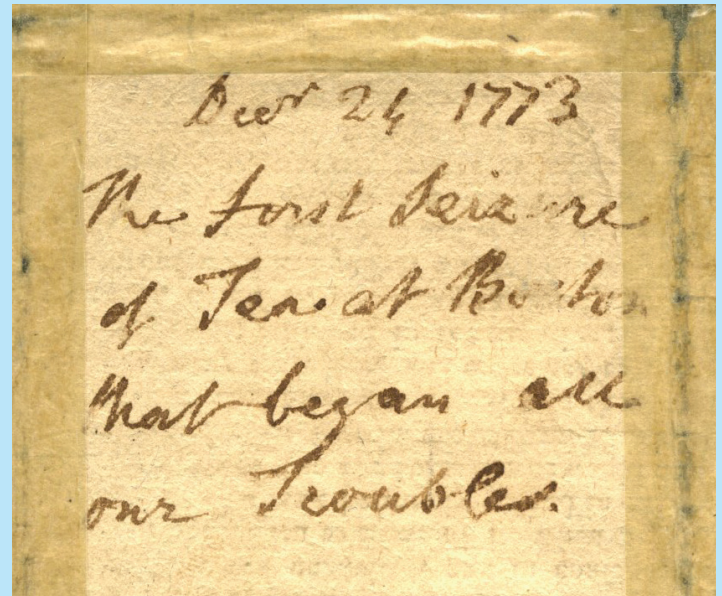 Decr 24 1773
The first Seizure
of Tea at Boston
that began all
our Troubles.